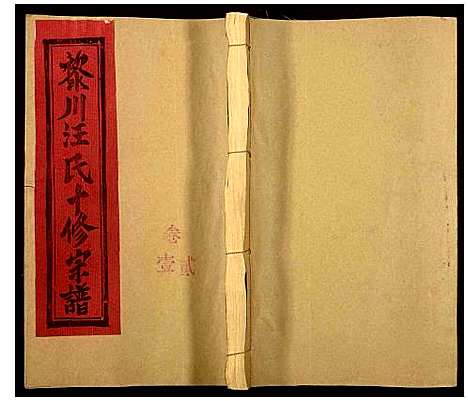 黎川汪氏十修宗譜
卷壹